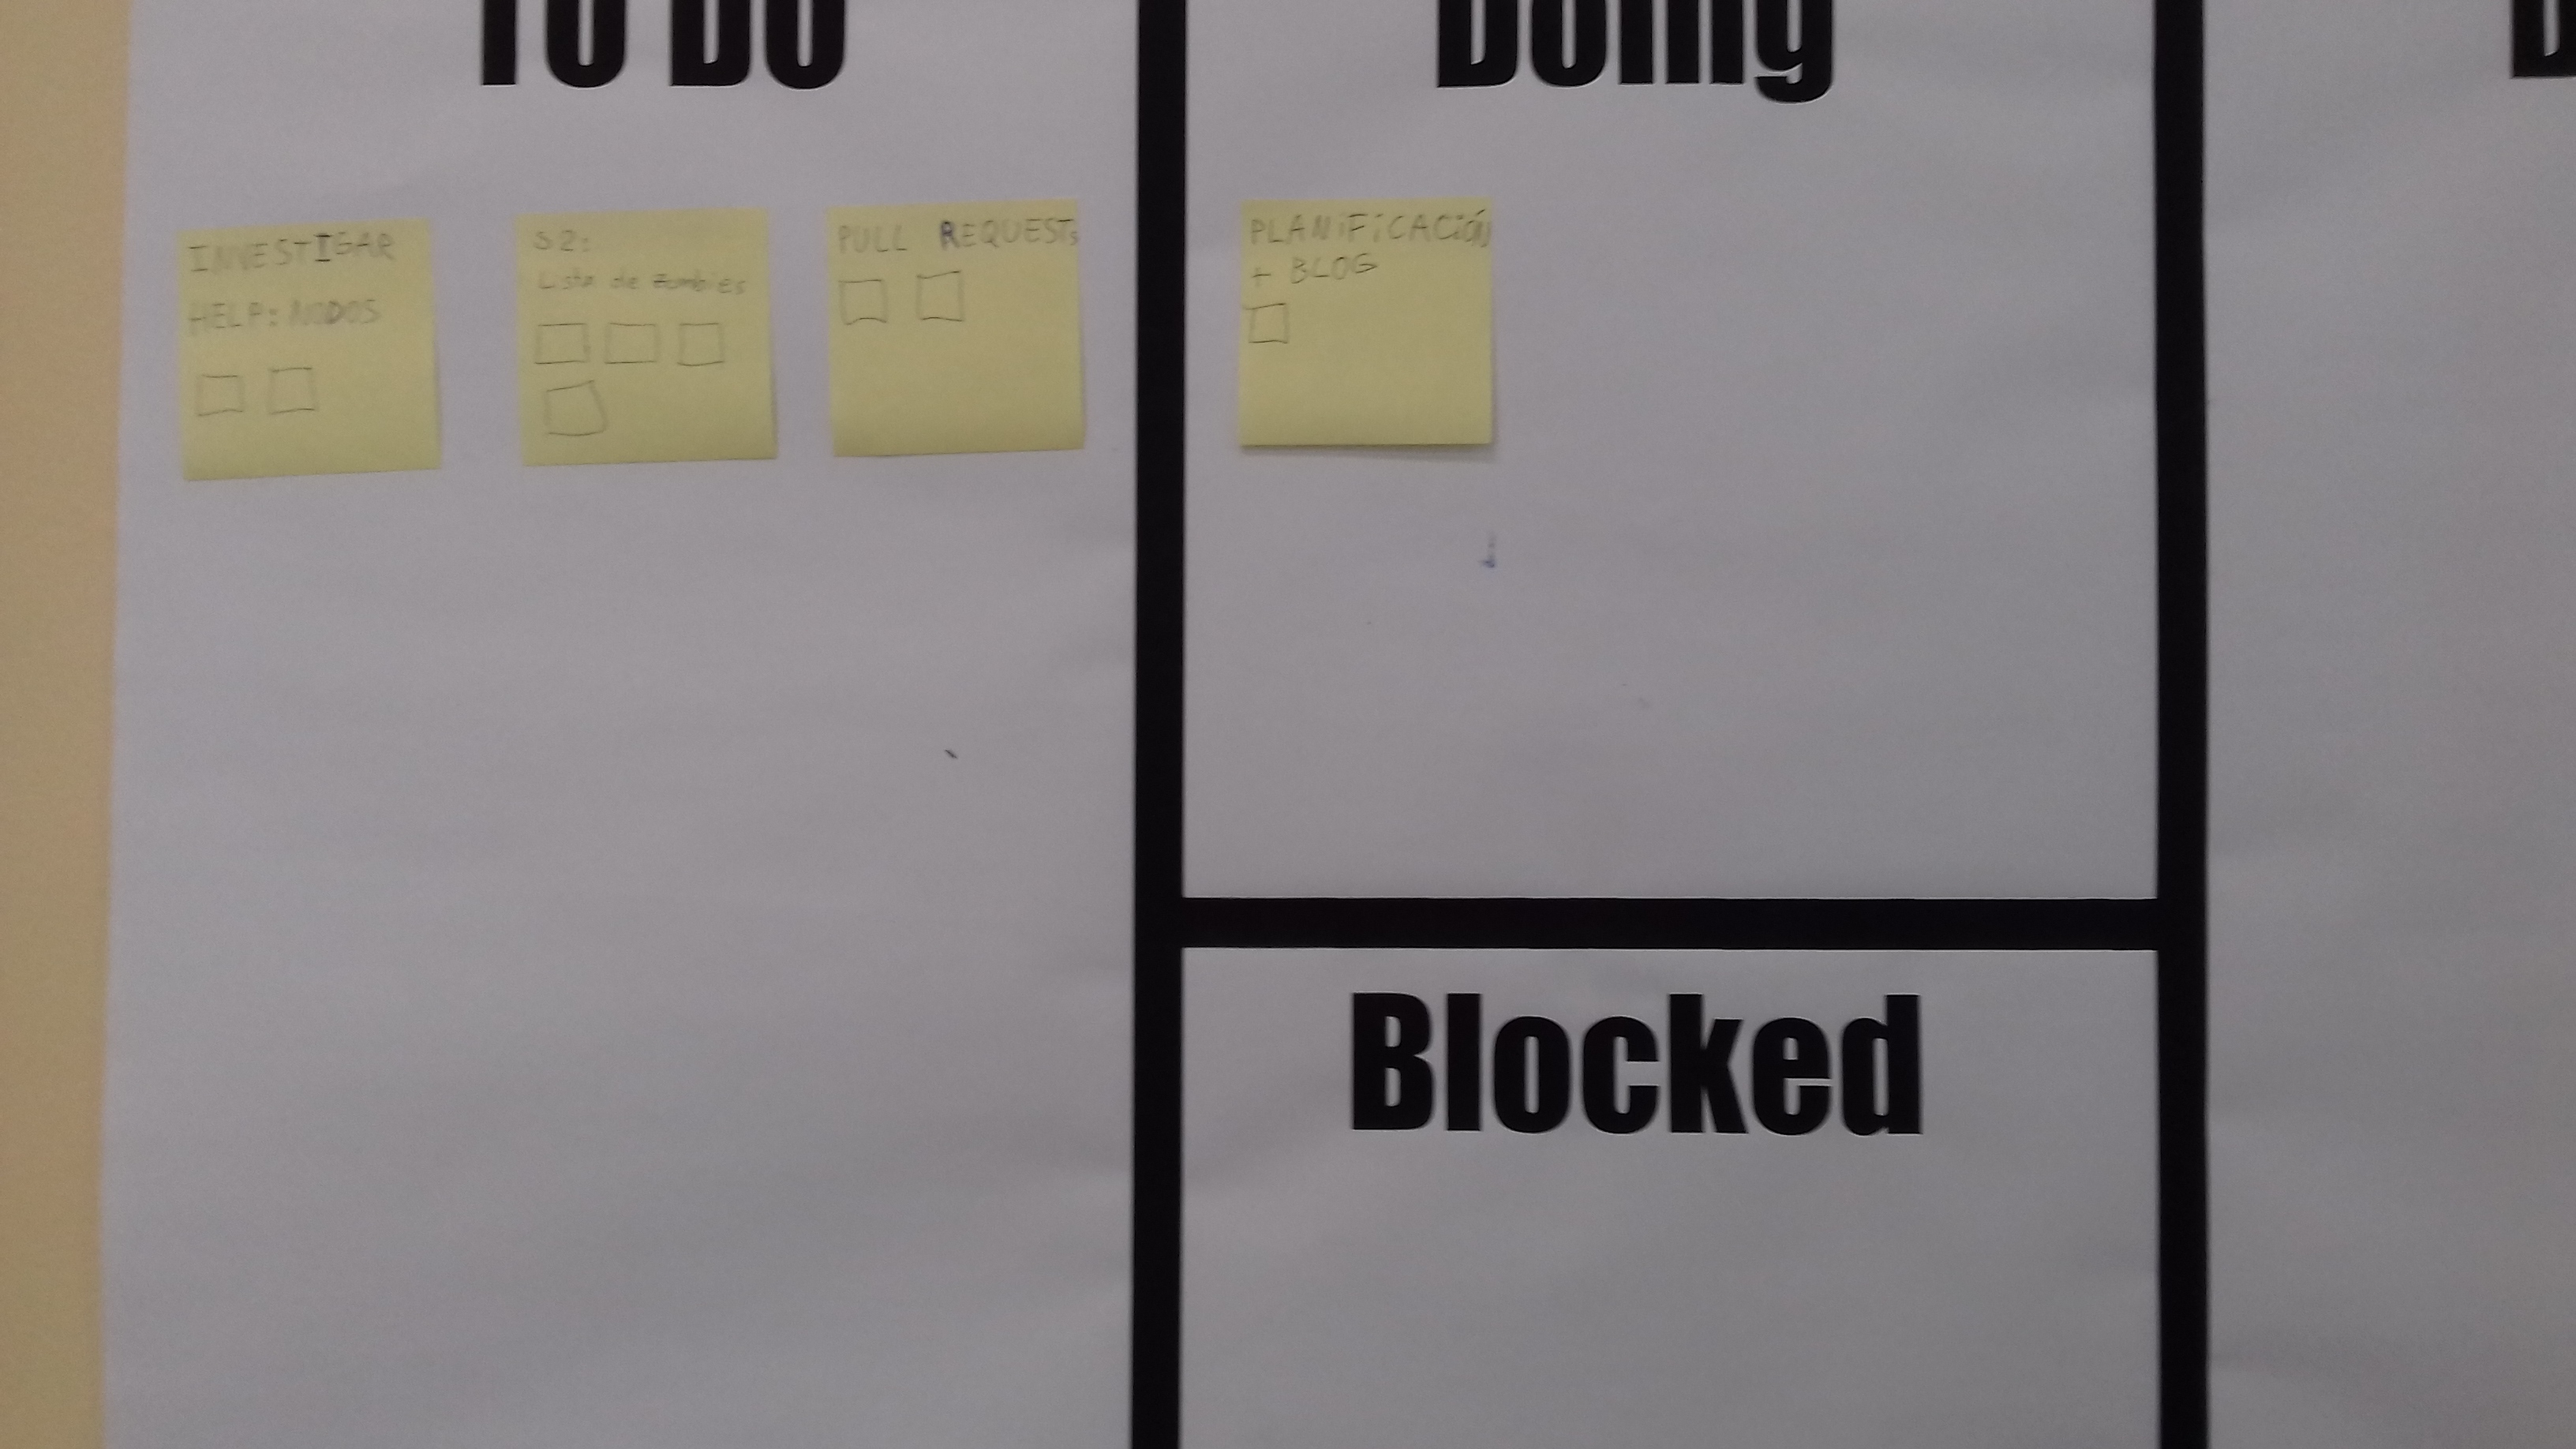 To Do
Doing
INVESTIGAR
HELP: NODOS
S2:
Lista de zombies
PULL REQUESTs
PLANIFICACIÓN
+ BLOG
Blocked